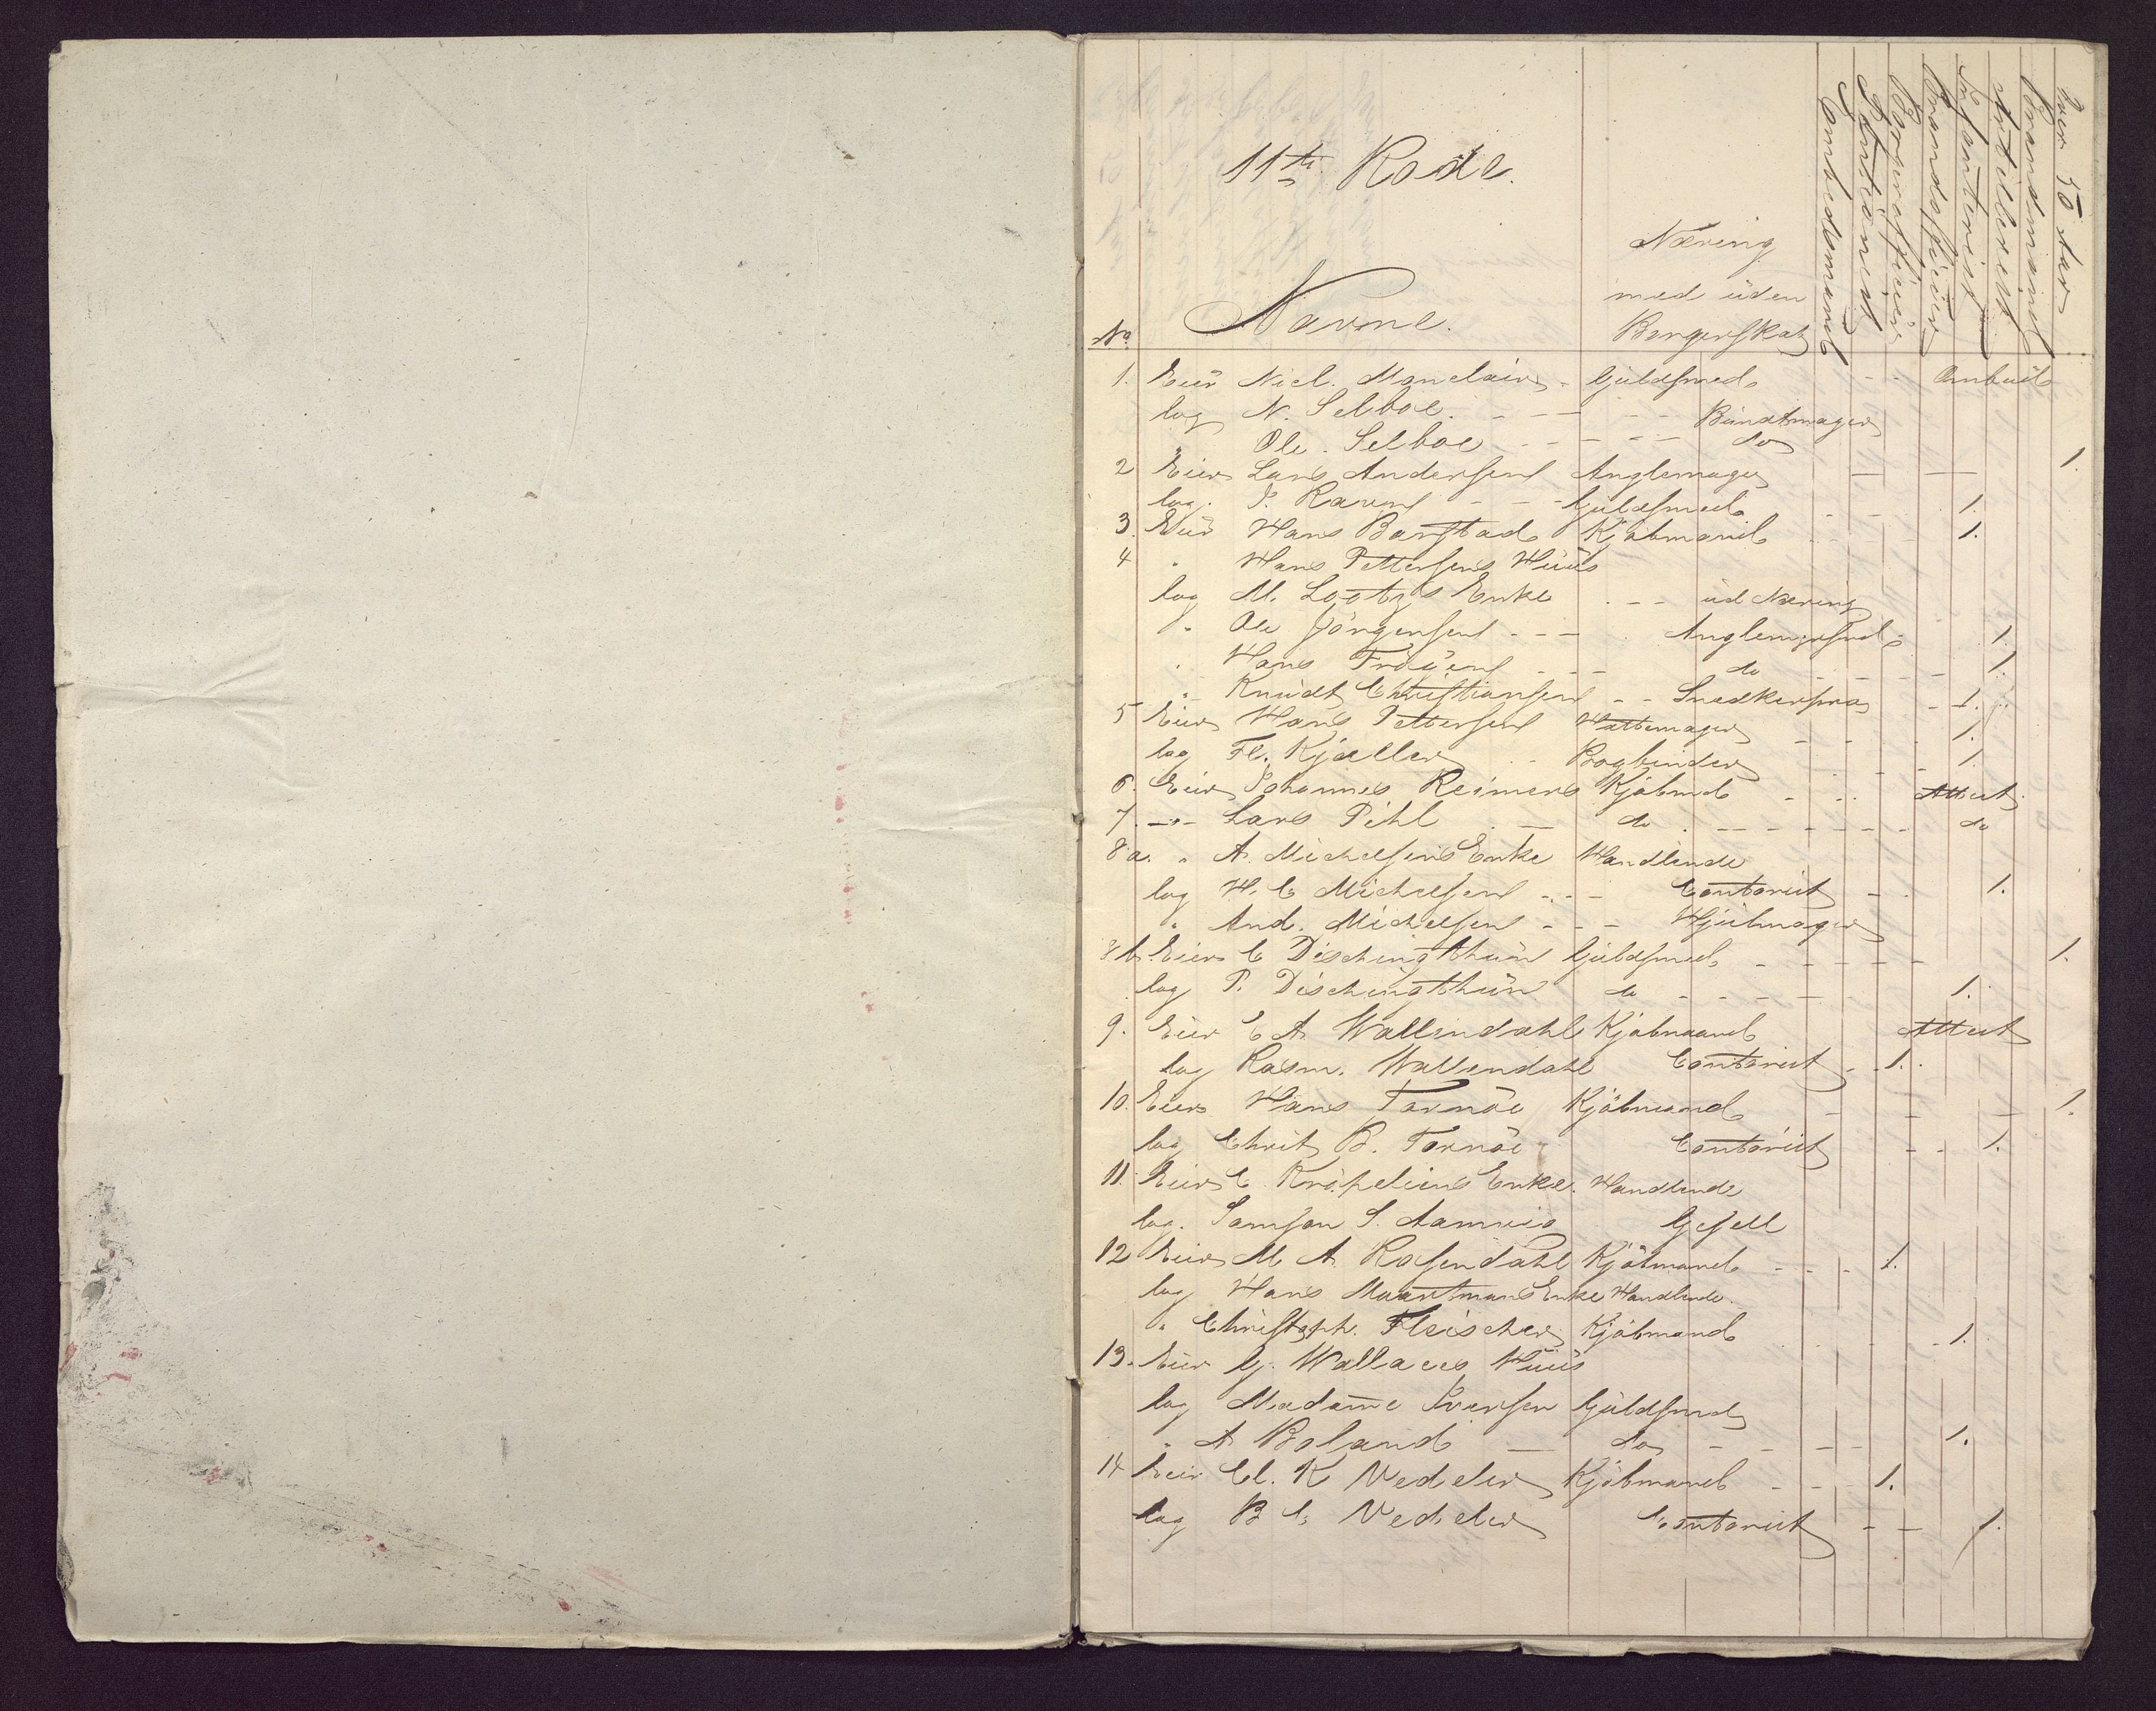 11te Rode.
No
Navne.
Næring
med uden
Borgerskab
Embedsmænd
Pensionist
Borgerofficier
Brandofficier
Infanterist
Artillerist
Brandmand
Over 50 Aar
1. Eier Niel. Monclair - Guldsmed - - Ombud
log N. Selboe. - - - Bundtmager
" Ole Selboe - - - do
2 Eier Lars Andersen Anglemager - - 1.
log. P. Ravn - - - Guldsmed - - 1.
3. Eier Hans Barstad Kjøbmand - - 1.
4 " Hans Pettersens Huus
log M. Lootzs Enke - - - ud Næring
" Ole Jörgensen - - - Anglemgrsvd - 1.
" Hans Fröyen - - - do - - 1.
" Knudt Christiansen - - Snedkersv - 1.
5 Eier Hans Pettersen Hattemager - - - 1.
log Fl. Kjæller - - Bogbinder - - - 1.
6. Eier Johannes Reimers Kjøbmd - - Attest
7. -"- Lars Pihl - do - - - - do
8a. " A. Michelsens Enke Handlende
log H. C Michelsen - - - Contorist - 1.
" And. Michelsen - - - Hjulmager
8b. Eier C Dischingthun Guldsmed - - - - 1.
log P. Dischingthun do - - - - - 1.
9. Eier E A. Wallendahl Kjøbmand Attest
log Rasm. Wallendahl Contorist - 1.
10. Eier Hans Tornöe Kjöbmand - - - 1.
log Christ B. Tornöe Contorist - - 1.
11. Eier C. Kröpeliens Enke. Handlende
log. Samson S. Aamvig Gesell
12 Eier M. A. Rosendahl Kjöbmand - - - 1.
log Hans Maartmans Enke Handlende.
" Christoph. Fleischer Kjöbmand 1.
13. Eier G. Wallaces Huus
log Madame Iversen Guldsmed
" A Boland - do - - - - 1.
14 Eier Cl. K Vedeler Kjöbmand - - - 1.
log B C. Vedeler Contorist - - 1.